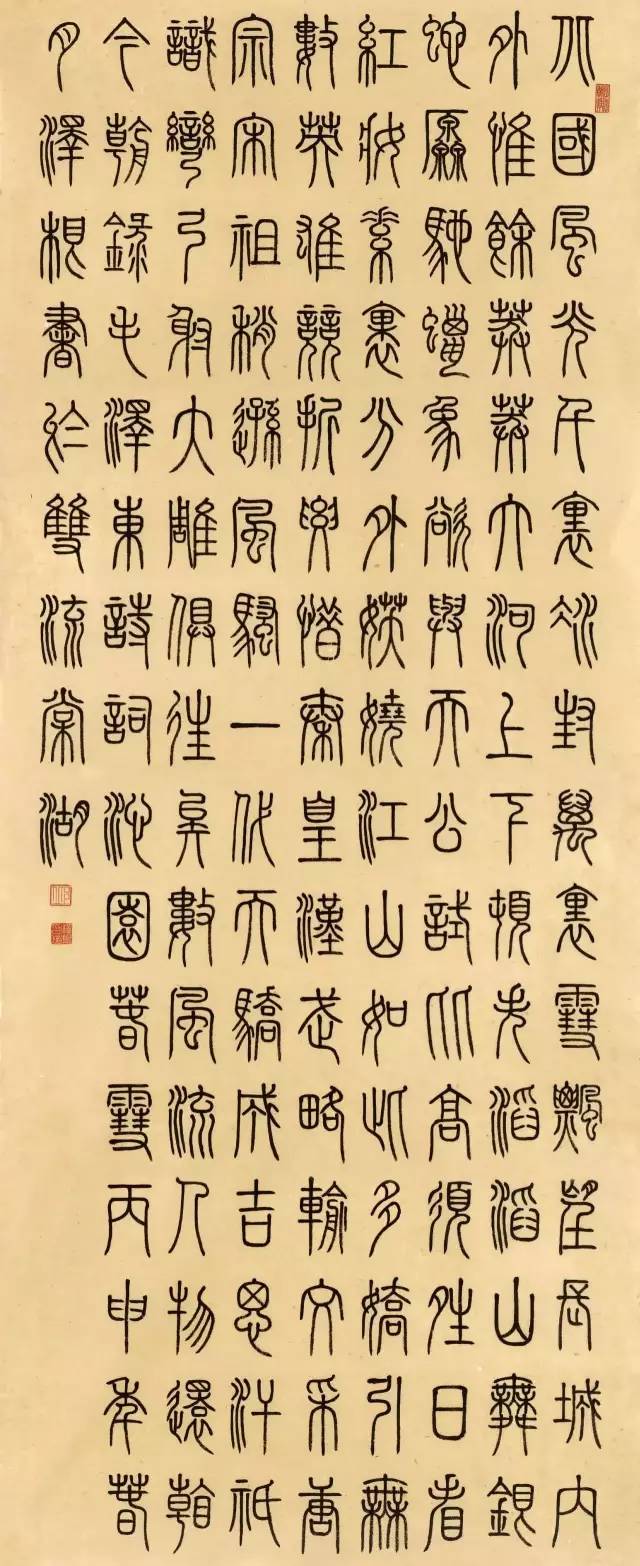 北國風光千里冰封萬里雪飄望長城內
外惟餘莽莽大河上下頓失滔滔山舞銀
蛇原馳蠟象欲與天公試比高須晴日看
紅妝素裹分外妖嬈江山如此多嬌引無
數英雄競折腰惜秦皇漢武略輸文采唐
宗宋祖稍遜風騷一代天驕成吉思汗祇
識彎弓射大雕俱往矣數風流人物還看
今朝錄毛澤東詩詞沁園春雪丙申年春
月澤根書於雙流棠湖